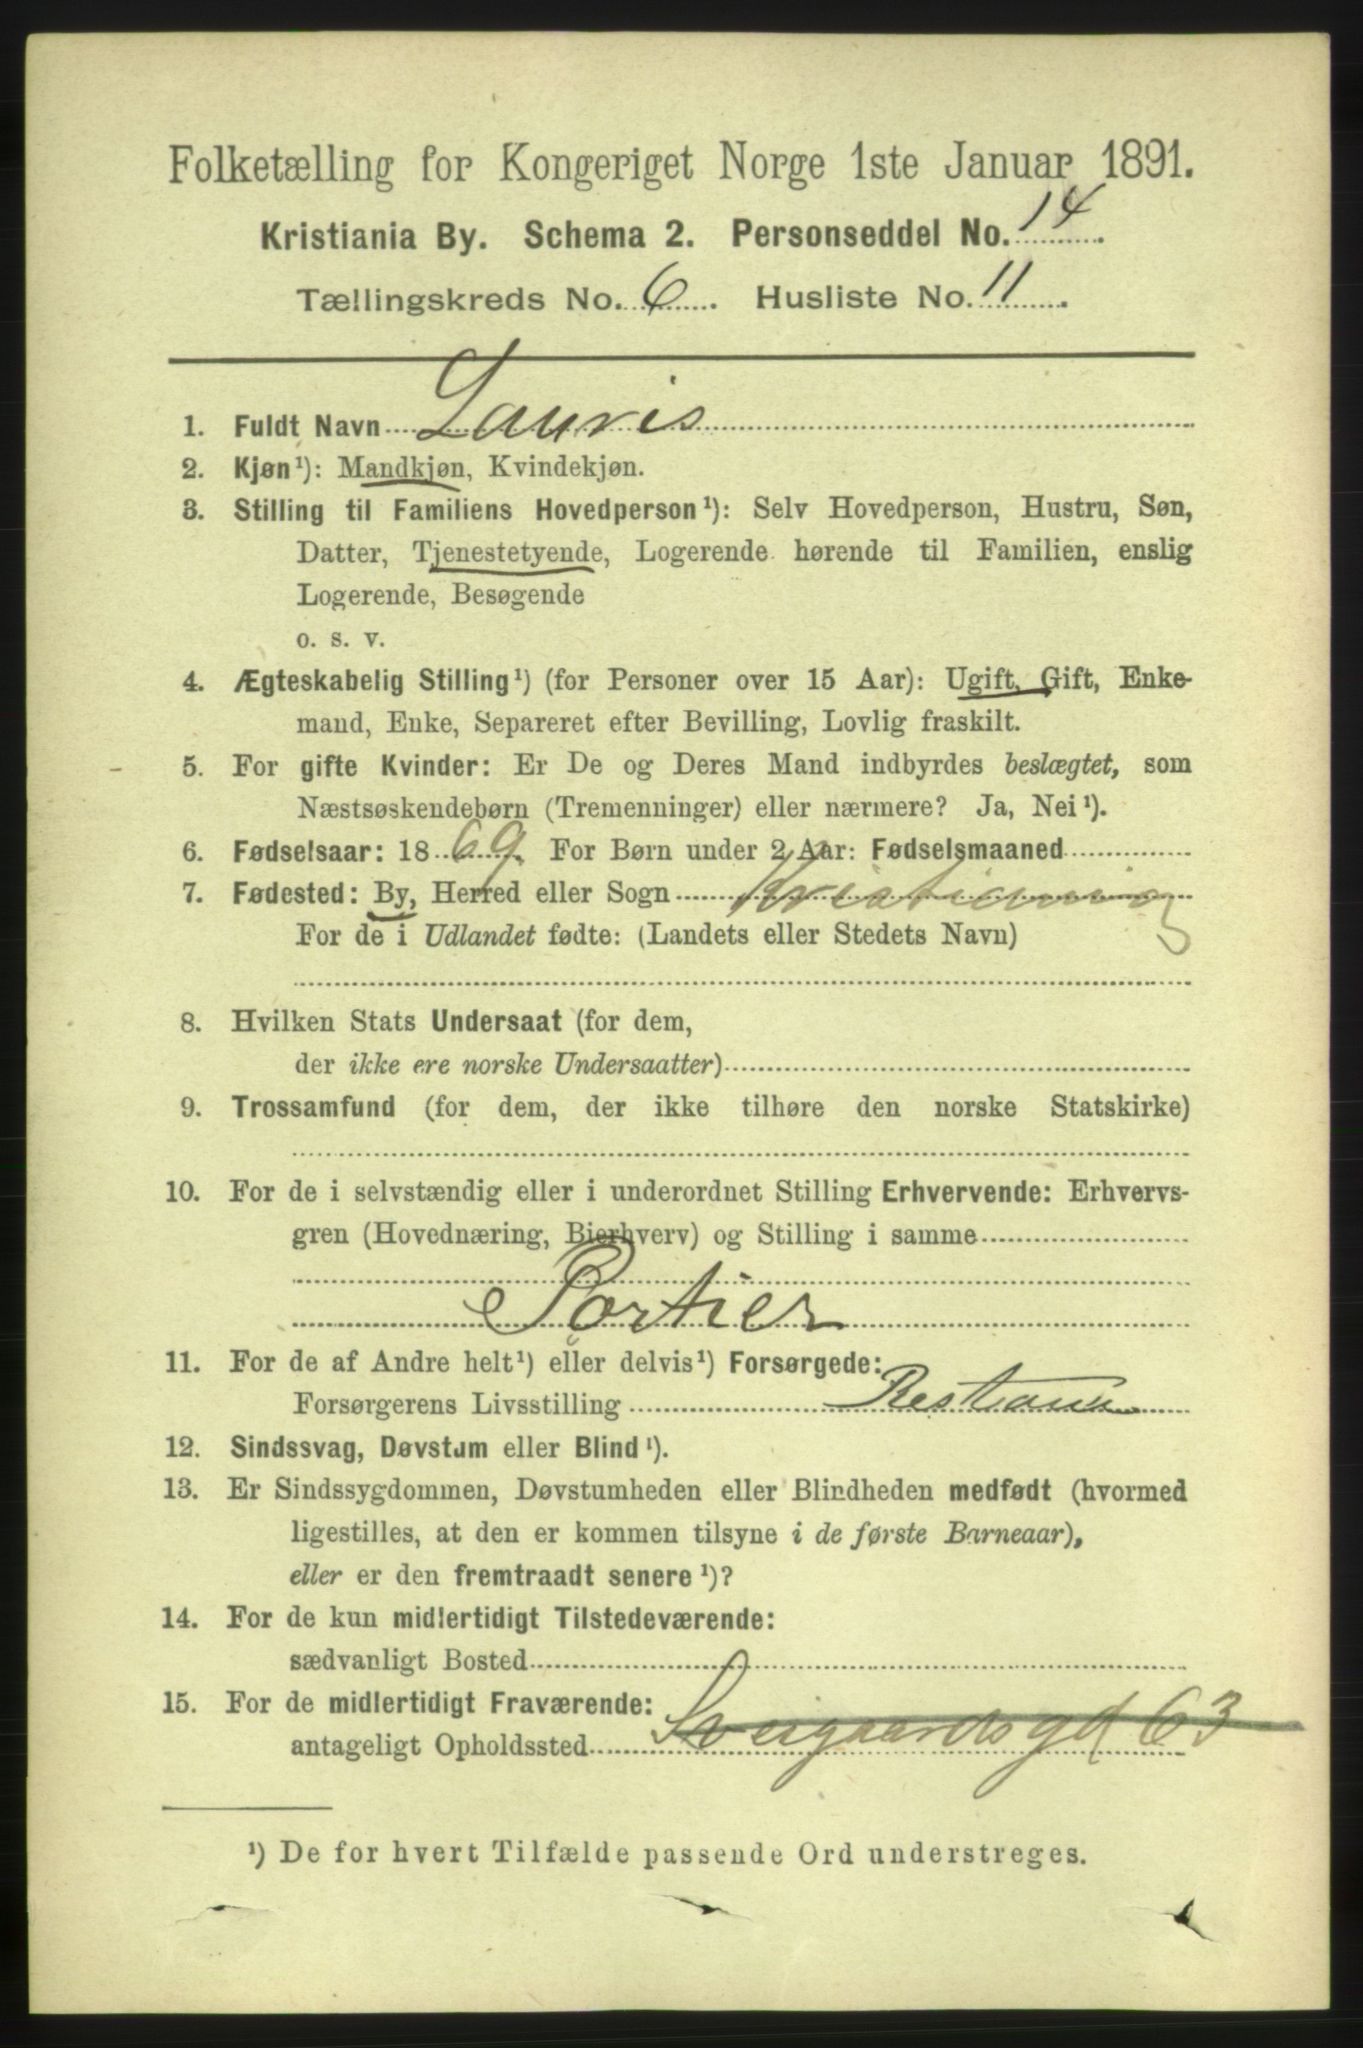 Folketælling for Kongeriget Norge 1ste Januar 1891.
Kristiania By. Schema 2. Personseddel No. 14.
Tællingskreds No. 6. Husliste No. 11.
1. Fuldt Navn Lauris
2. Kjøn¹): Mandkjøn, Kvindekjøn.
3. Stilling til Familiens Hovedperson¹): Selv Hovedperson, Hustru, Søn,
Datter, Tjenestetyende, Logerende hørende til Familien, enslig
Logerende, Besøgende
o. s. v.
4. Ægteskabelig Stilling¹) (for Personer over 15 Aar): Ugift, Gift, Enke-
mand, Enke, Separeret efter Bevilling, Lovlig fraskilt.
5. For gifte Kvinder: Er De og Deres Mand indbyrdes beslægtet, som
Næstsøskendebørn (Tremenninger) eller nærmere? Ja, Nei¹).
6. Fødselsaar: 1869. For Børn under 2 Aar: Fødselsmaaned
7. Fødested: By, Herred eller Sogn Kristiania
For de i Udlandet fødte: (Landets eller Stedets Navn)
8. Hvilken Stats Undersaat (for dem,
der ikke ere norske Undersaatter)
9. Trossamfund (for dem, der ikke tilhøre den norske Statskirke)
10. For de i selvstændig eller i underordnet Stilling Erhvervende: Erhvervs-
gren (Hovednæring, Bierhverv) og Stilling i samme
Portier
11. For de af Andre helt¹) eller delvis¹) Forsørgede:
Forsørgerens Livsstilling
12. Sindssvag, Døvstum eller Blind¹).
13. Er Sindssygdommen, Døvstumheden eller Blindheden medfødt (hvormed
ligestilles, at den er kommen tilsyne i de første Barneaar),
eller er den fremtraadt senere¹)?
14. For de kun midlertidigt Tilstedeværende:
sædvanligt Bosted
15. For de midlertidigt Fraværende:
antageligt Opholdssted Sveigaardsgd 63
¹) De for hvert Tilfælde passende Ord understreges.